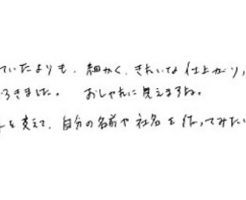 ていたよりも、細かく、きれいな仕上がり、
ろきました。 おしゃれに見えますね。
を変えて、自分の名前や社名を作ってみたい